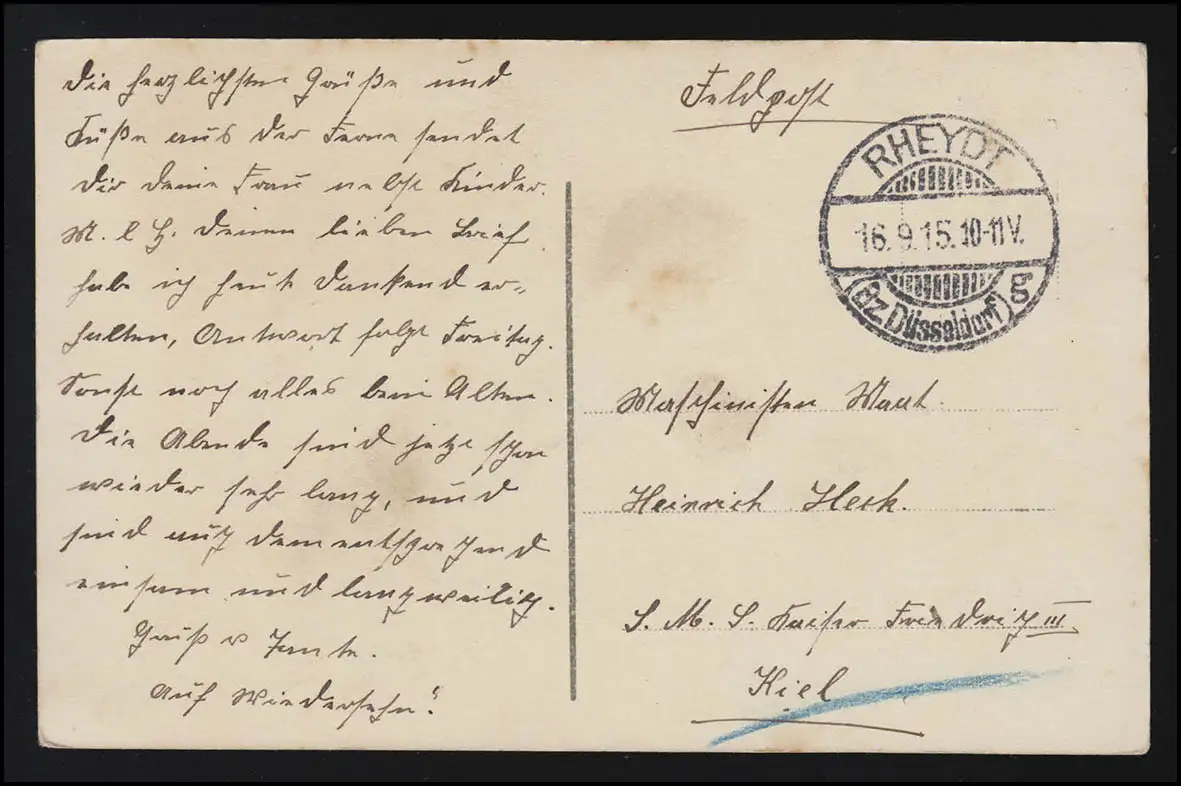 Die herzlichsten Grüße und
Küße aus der Ferne sendet
Dir deine Frau nebst Kinder.
M. l. H. Deinen lieben Brief
habe ich heute dankend er-
halten, Antwort folgt Freitag.
Sonst noch alles beim Alten.
Die Abende sind jetzt schon
wieder sehr lang, und
sind auch dementsprechend
einsam und langweilig.
Gruß v Tante.
Auf Wiedersehn!
Feldpost
RHEYDT
16.9.15.10-11V.
(Bz. Düsseldorf) g
Maschinisten Maat.
Heinrich Heck.
S. M. S. Kaiser Friedrich III
Kiel